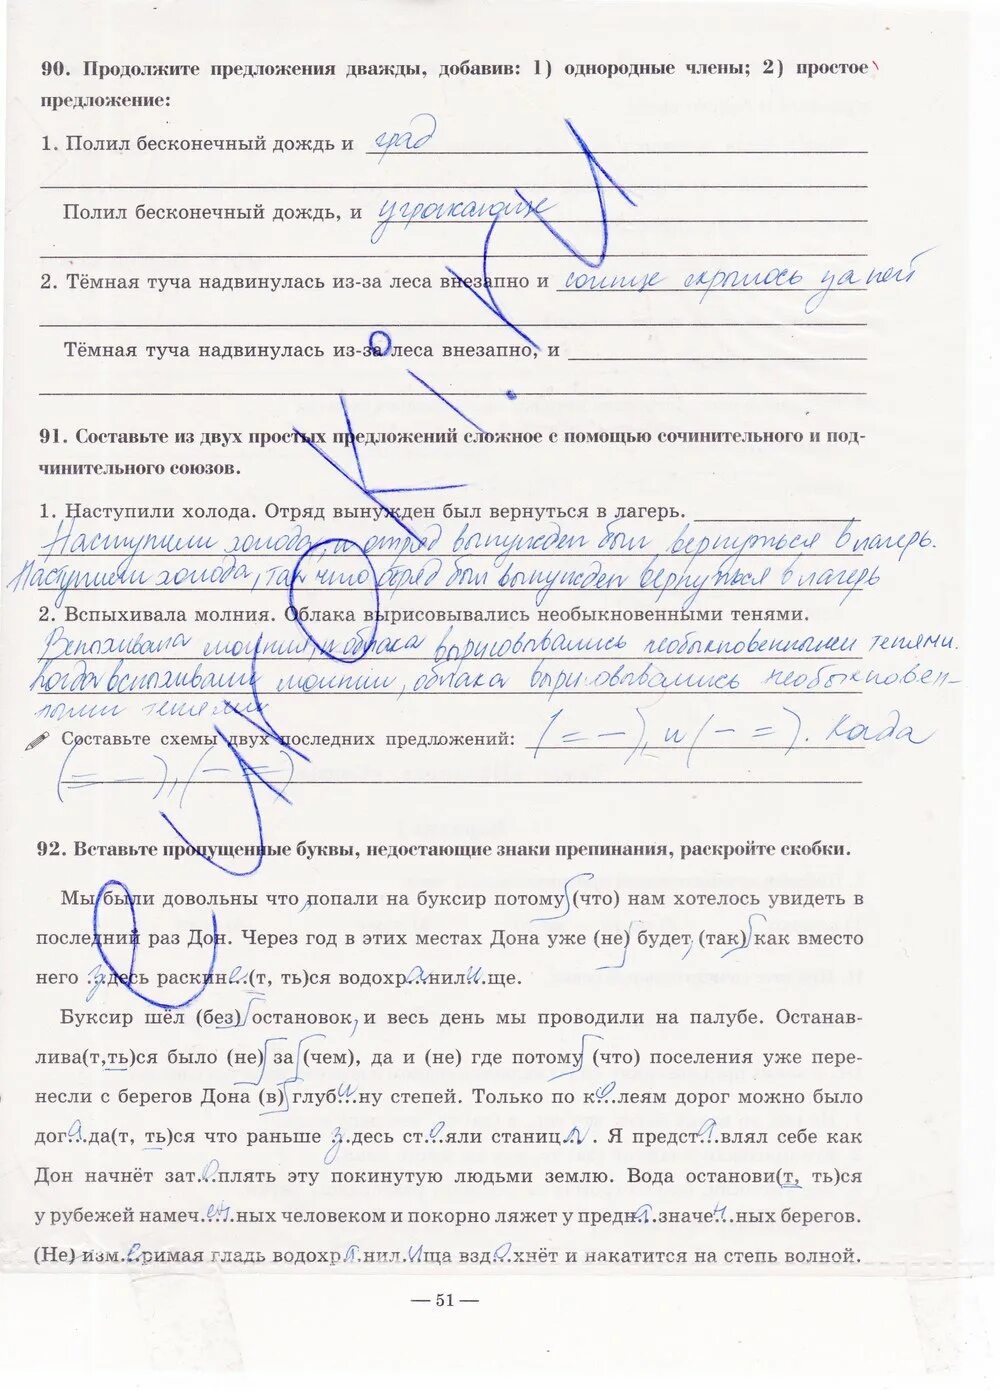 90. Продолжите предложения дважды, добавив: 1) однородные члены; 2) простое
предложение:
1. Полил бесконечный дождь и град
Полил бесконечный дождь, и угрожающе
2. Тёмная туча надвинулась из-за леса внезапно и солнце скрылось за ней
Тёмная туча надвинулась из-за леса внезапно, и
91. Составьте из двух простых предложений сложное с помощью сочинительного и под-
чинительного союзов.
1. Наступили холода. Отряд вынужден был вернуться в лагерь.
Наступили холода, и отряд вынужден был вернуться в лагерь.
Наступили холода, так что отряд был вынужден вернуться в лагерь
2. Вспыхивала молния. Облака вырисовывались необыкновенными тенями.
Вспыхивала молния, и облака вырисовывались необыкновенными тенями.
Когда вспыхивали молнии, облака вырисовывались необыкновен-
ными тенями
Составьте схемы двух последних предложений: (= –), и (– =). Когда
(= –), (– =)
92. Вставьте пропущенные буквы, недостающие знаки препинания, раскройте скобки.
Мы были довольны что, попали на буксир потому (что) нам хотелось увидеть в
последний раз Дон. Через год в этих местах Дона уже (не) будет, (так) как вместо
него здесь раскине(т, ть)ся водохранилище.
Буксир шёл (без) остановок, и весь день мы проводили на палубе. Останав-
лива(т,ть)ся было (не) за (чем), да и (не) где потому (что) поселения уже пере-
несли с берегов Дона (в) глубину степей. Только по колеям дорог можно было
догада(т, ть)ся что раньше здесь стояли станицы. Я представлял себе как
Дон начнёт затоплять эту покинутую людьми землю. Вода останови(т, ть)ся
у рубежей намеченных человеком и покорно ляжет у предназначенных берегов.
(Не) измеримая гладь водохранилища вздохнёт и накатится на степь волной.
— 51 —
euroki.ru